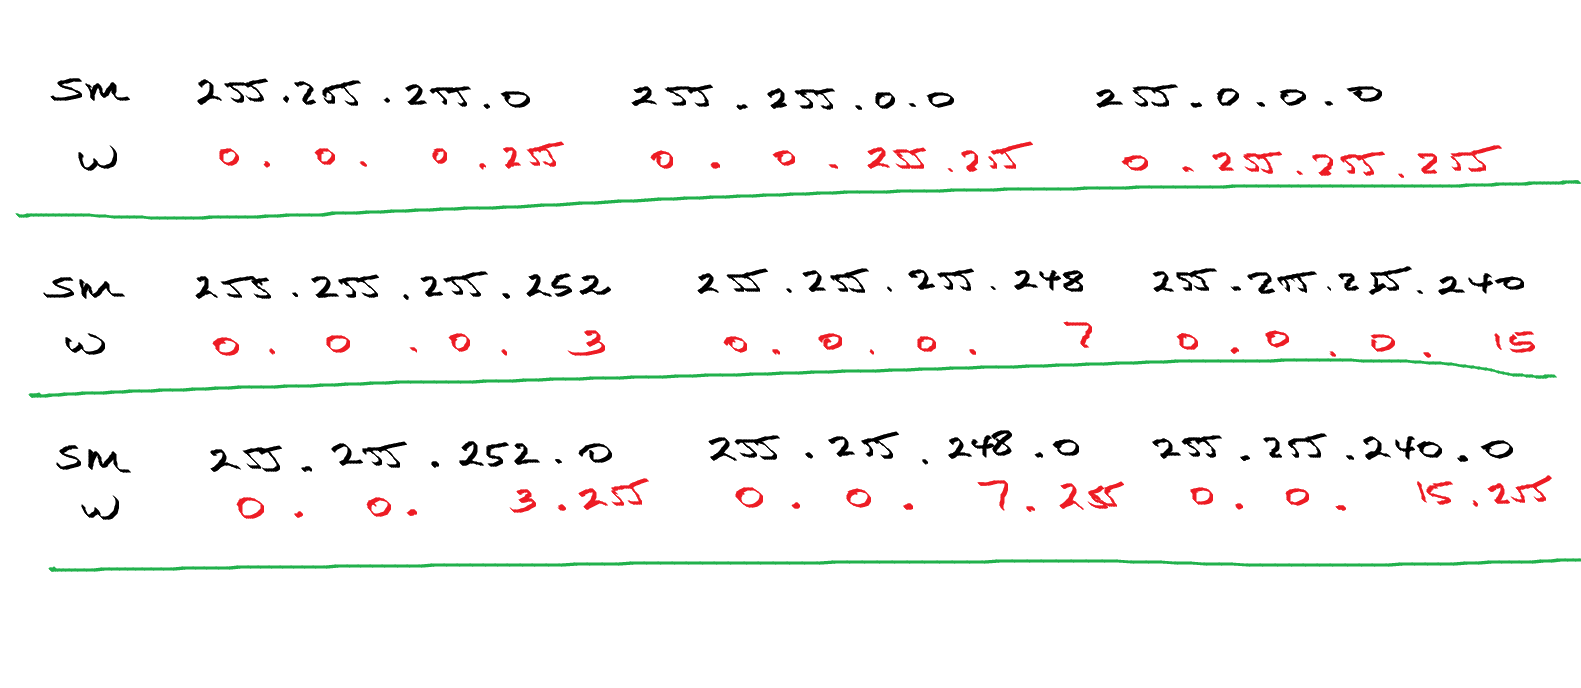 SM 255.255.255.0 255.255.0.0 255.0.0.0
W 0.0.0.255 0.0.255.255 0.255.255.255
SM 255.255.255.252 255.255.255.248 255.255.255.240
W 0.0.0.3 0.0.0.7 0.0.0.15
SM 255.255.252.0 255.255.248.0 255.255.240.0
W 0.0.3.255 0.0.7.255 0.0.15.255